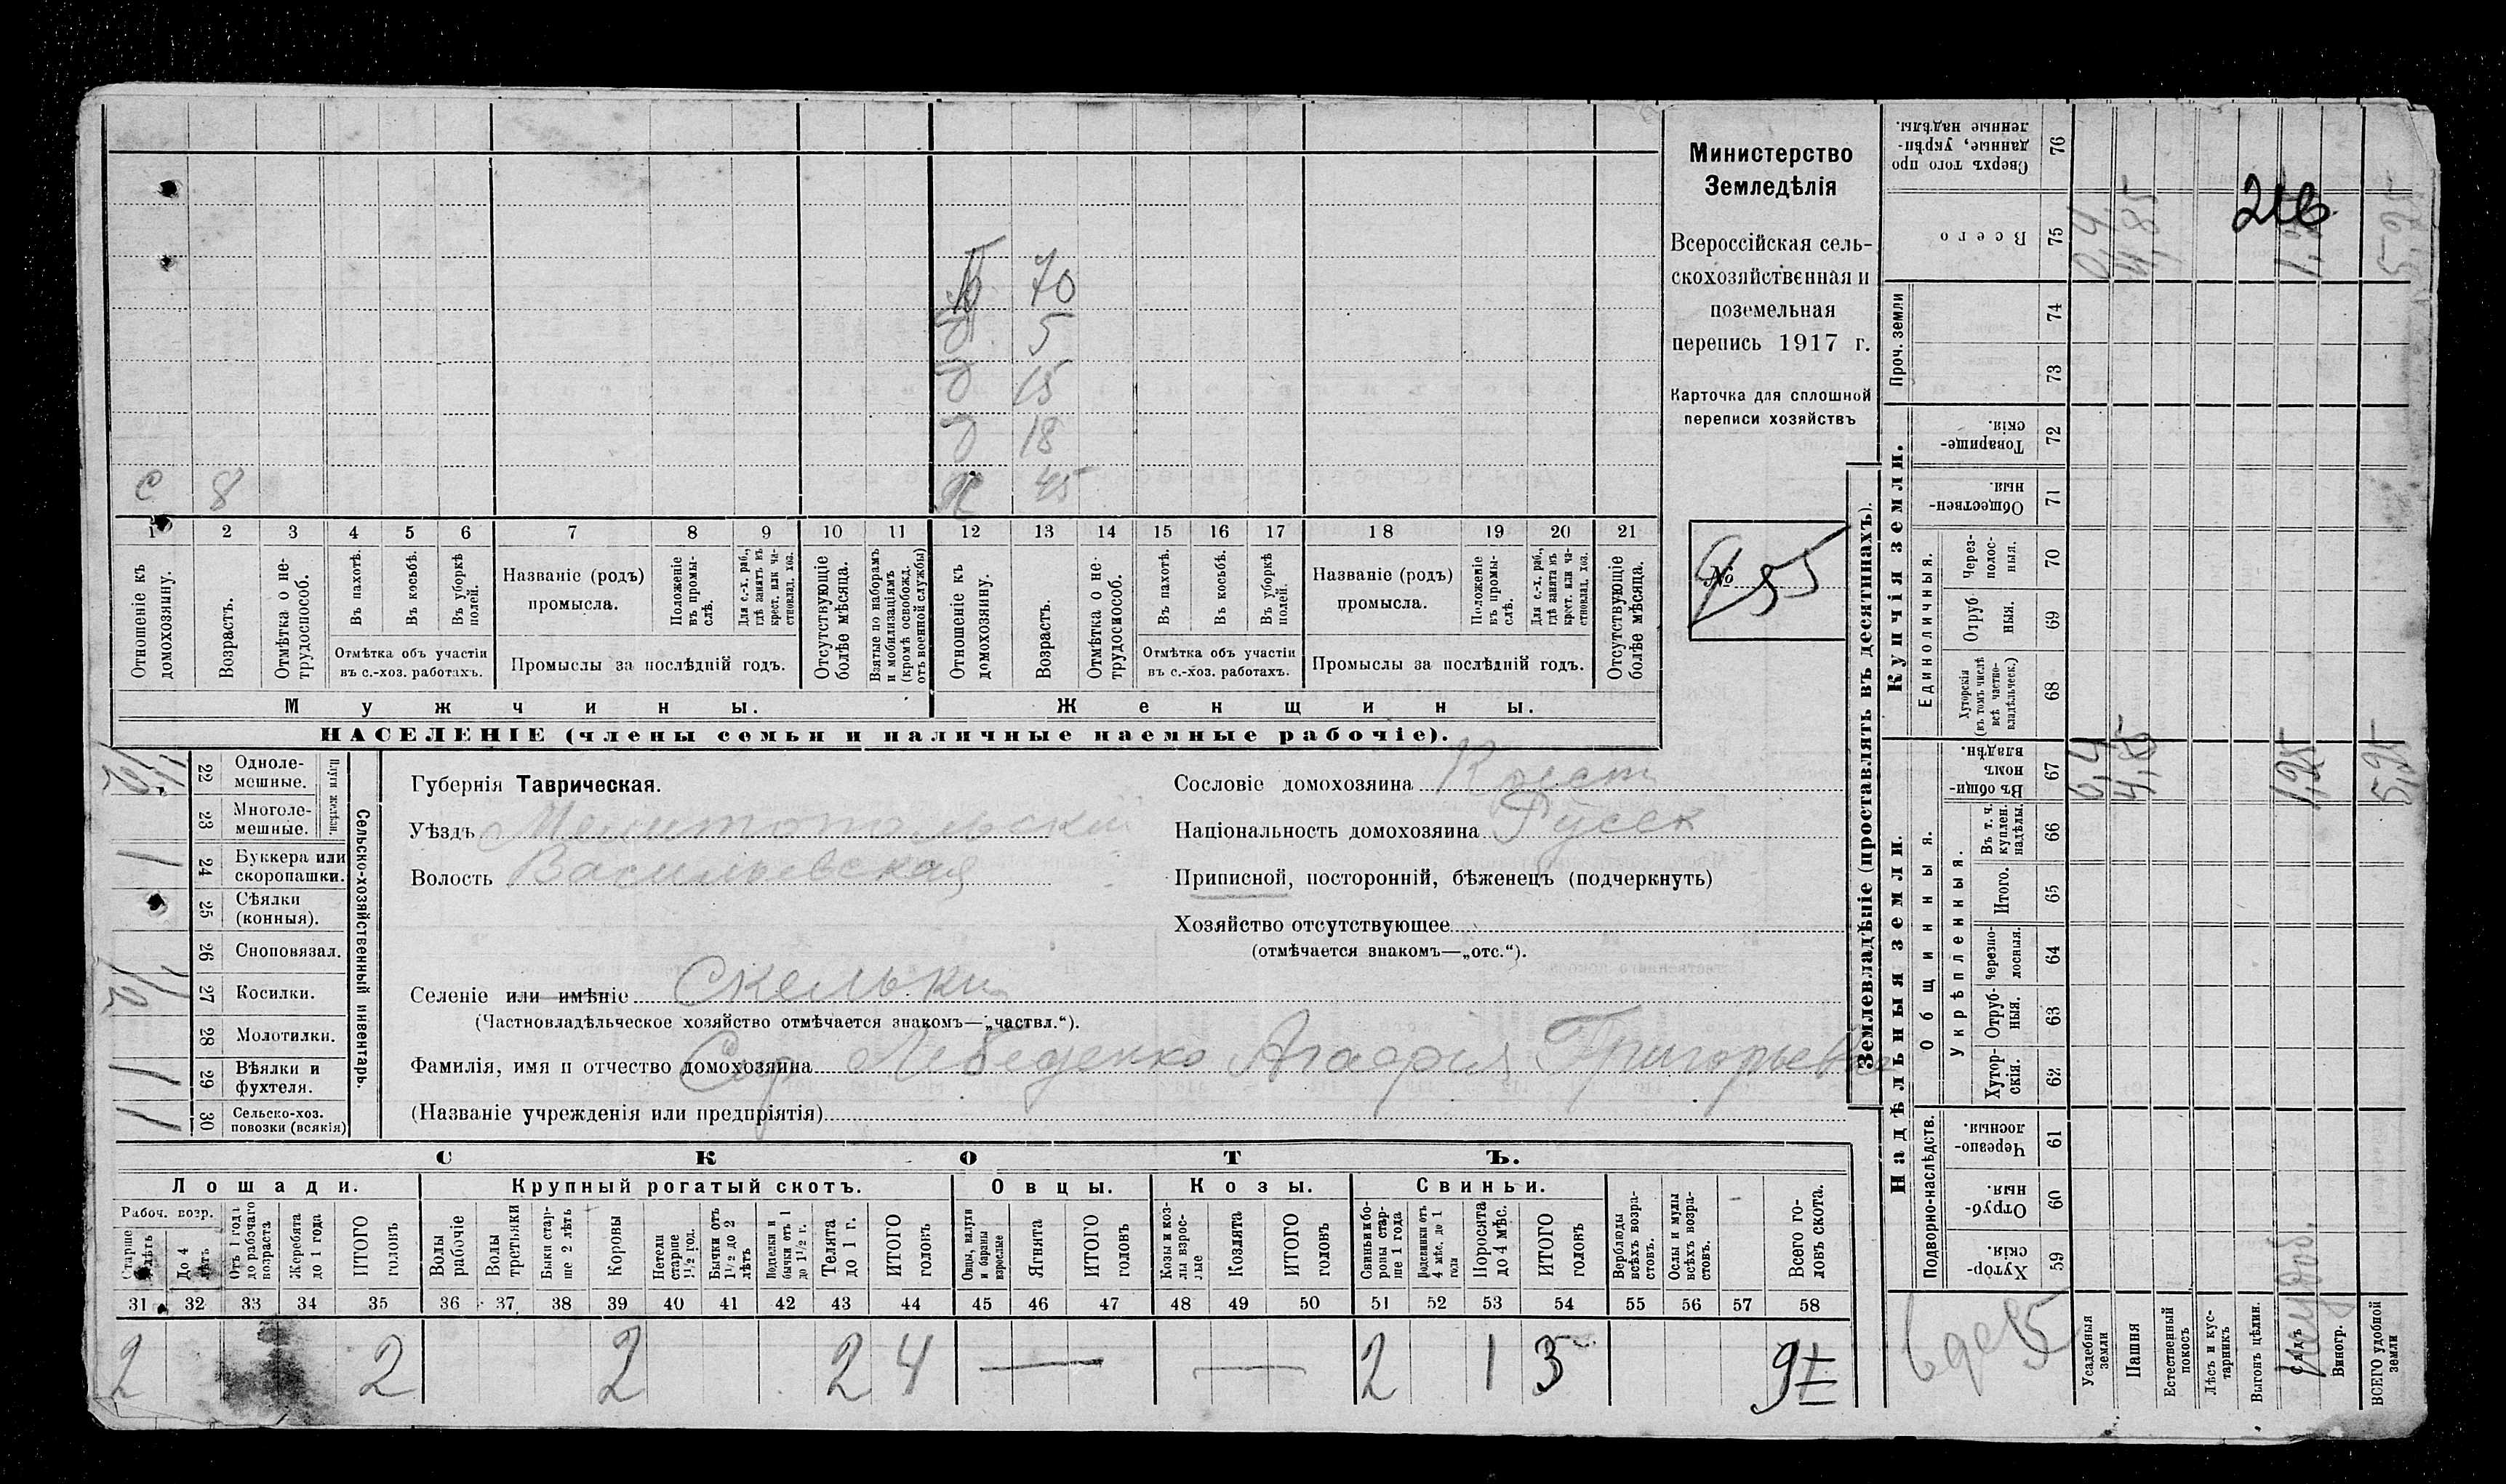 Министерство
Земледѣлія
Всероссійская сель-
скохозяйственная и
поземельная
перепись 1917 г.
Карточка для сплошной
переписи хозяйствъ
№ 95
70
5
д 15
д 18
с 8
ж 45
1 2 3 4 5 6 7 8 9 10 11 12 13 14 15 16 17 18 19 20 21
Отношеніе къ домохозяину.
Возрастъ.
Отмѣтка о не-трудоспособ.
Въ пахотѣ.
Въ косьбѣ.
Въ уборкѣ полей.
Отмѣтка объ участіи
въ с.-хоз. работахъ.
Названіе (родъ)
промысла.
Положеніе въ промы-слѣ.
Для с.-х. раб., гдѣ занятъ въ крест. или ча-стновлад. хоз.
Промыслы за послѣдній годъ.
Отсутствующіе болѣе мѣсяца.
Взятые по наборамъ и мобилизаціямъ (кромѣ освобожд. отъ военной службы)
Отношеніе къ домохозяину.
Возрастъ.
Отмѣтка о не-трудоспособ.
Въ пахотѣ.
Въ косьбѣ.
Въ уборкѣ полей.
Отмѣтка объ участіи
въ с.-хоз. работахъ.
Названіе (родъ)
промысла.
Положеніе въ промы-слѣ.
Для с.-х. раб., гдѣ занята въ крест. или ча-стновлад. хоз.
Промыслы за послѣдній годъ.
Отсутствующіе болѣе мѣсяца.
Мужчины.
Женщины.
НАСЕЛЕНІЕ (члены семьи и наличные наемные рабочіе).
22 Одноле-мешные.
23 Многоле-мешные.
Плуги желѣзн.
24 Буккера или скоропашки. 1
25 Сѣялки (конныя).
26 Сноповязал.
27 Косилки. 1/2
28 Молотилки.
29 Вѣялки и фухтеля. 1
30 Сельско-хоз. повозки (всякія) 1
Сельско-хозяйственный инвентарь.
Губернія Таврическая.
Уѣздъ Мелитопольскій
Волость Васильевская
Селеніе или имѣніе Скельки
(Частновладѣльческое хозяйство отмѣчается знакомъ—„частвл.“).
Фамилія, имя и отчество домохозяина Лебеденко Агафия Григорьевна
(Названіе учрежденія или предпріятія)
Сословіе домохозяина Крест
Національность домохозяина Русск
Приписной, посторонній, бѣженецъ (подчеркнуть)
Хозяйство отсутствующее
(отмѣчается знакомъ—„отс.“).
СКОТЪ.
Лошади.
Крупный рогатый скотъ.
Овцы.
Козы.
Свиньи.
Рабоч. возр.
Старше 4 лѣтъ
До 4 лѣтъ
Отъ 1 года до рабочаго возраста
Жеребята до 1 года
ИТОГО головъ
Волы рабочіе
Волы третьяки
Быки стар-ше 2 лѣтъ
Коровы
Нетели старше 1 1/2 год.
Бычки отъ 1 1/2 до 2 лѣтъ
Подтелки и бычки отъ 1 до 1 1/2 г.
Телята до 1 г.
ИТОГО головъ
Овцы, валухи и бараны взрослые
Ягнята
ИТОГО головъ
Козы и коз-лы взрос-лые
Козлята
ИТОГО головъ
Свиньи и бо-ровы стар-ше 1 года
Подсвинки отъ 4 мѣс. до 1 года
Поросята до 4 мѣс.
ИТОГО головъ
Верблюды всѣхъ возра-стовъ.
Ослы и мулы всѣхъ возра-стовъ.
Всего го-ловъ скота.
31 32 33 34 35 36 37 38 39 40 41 42 43 44 45 46 47 48 49 50 51 52 53 54 55 56 57 58
2 2 2 2 4 — — 2 1 3 9
Землевладѣніе (проставлять въ десятинахъ).
Надѣльныя земли.
Купчія земли.
Проч. земли
Подворно-наслѣдств.
Общинныя.
Укрѣпленныя.
Единоличныя.
Сверхъ того про данные, укрѣп-ленные надѣлы. 76
Всего 75
74
73
Товарище-скія. 72
Обществен-ныя. 71
Через-полос-ныя. 70
Отруб ныя. 69
Хуторскія (въ томъ числѣ всѣ частно-владѣльческ.) 68
Въ общи-номъ владѣн. 67
Въ т. ч. куплен. надѣлы. 66
Итого. 65
Черезпо-лосныя. 64
Отруб-ныя. 63
Хутор-скія. 62
Черезпо-лосныя. 61
Отруб-ныя. 60
Хутор-скія. 59
0,4 4,85 5,25
216
0,4 4,85 1,25 5,25
Усадебныя земли
Пашня
Естественный покосъ
Лѣсъ и кус-тарникъ
Выгонъ цѣлин.
Садъ
Виногр.
ВСЕГО удобной земли
неудоб.